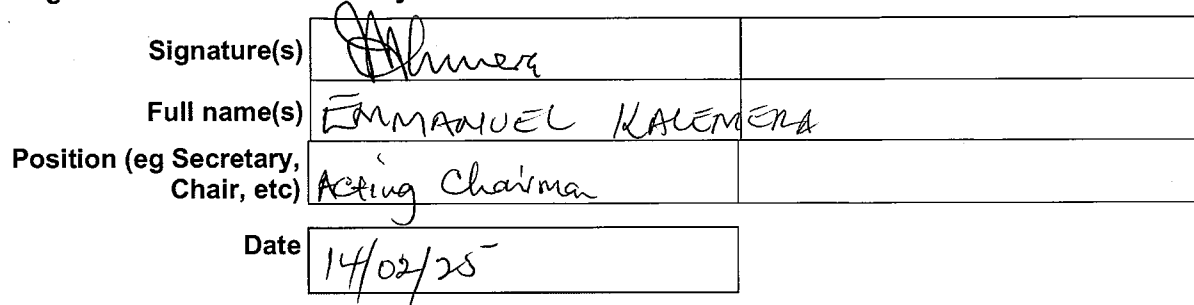 Signature(s)
Full name(s) EMMANUEL KALEMERA
Position (eg Secretary,
Chair, etc) Acting Chairman
Date 14/02/25